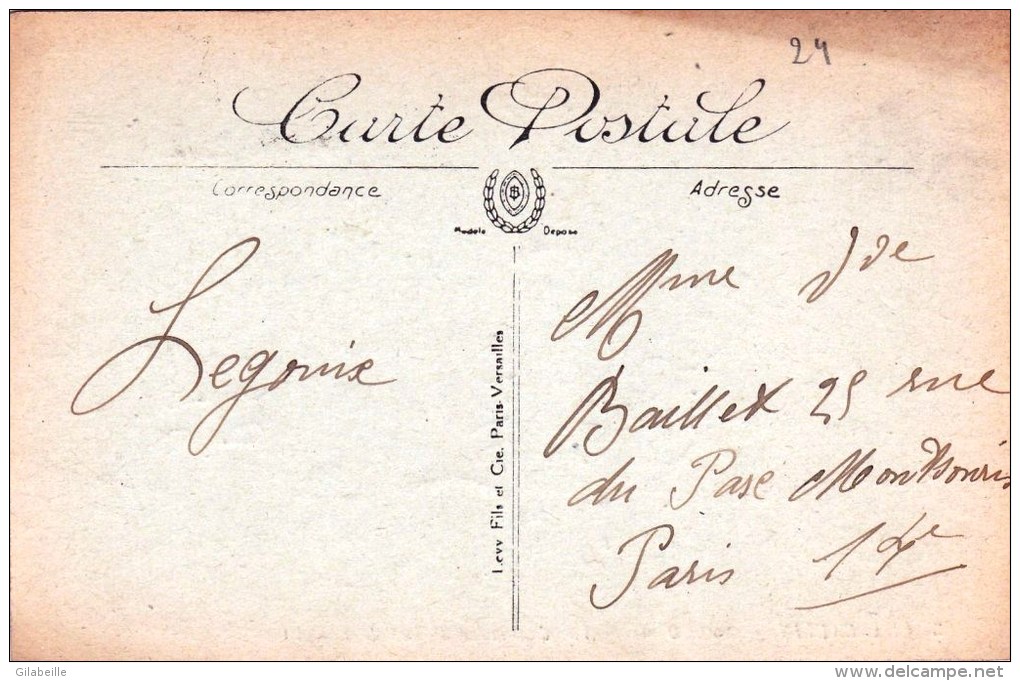 24
Carte Postale
Correspondance
Adresse
Modèle Déposé
Legouix
Levy Fils et Cie. Paris-Versailles
Mme Vve
Baillet 25 rue
du Parc Montsouris
Paris 14e
Gilabeille
www.delcampe.net